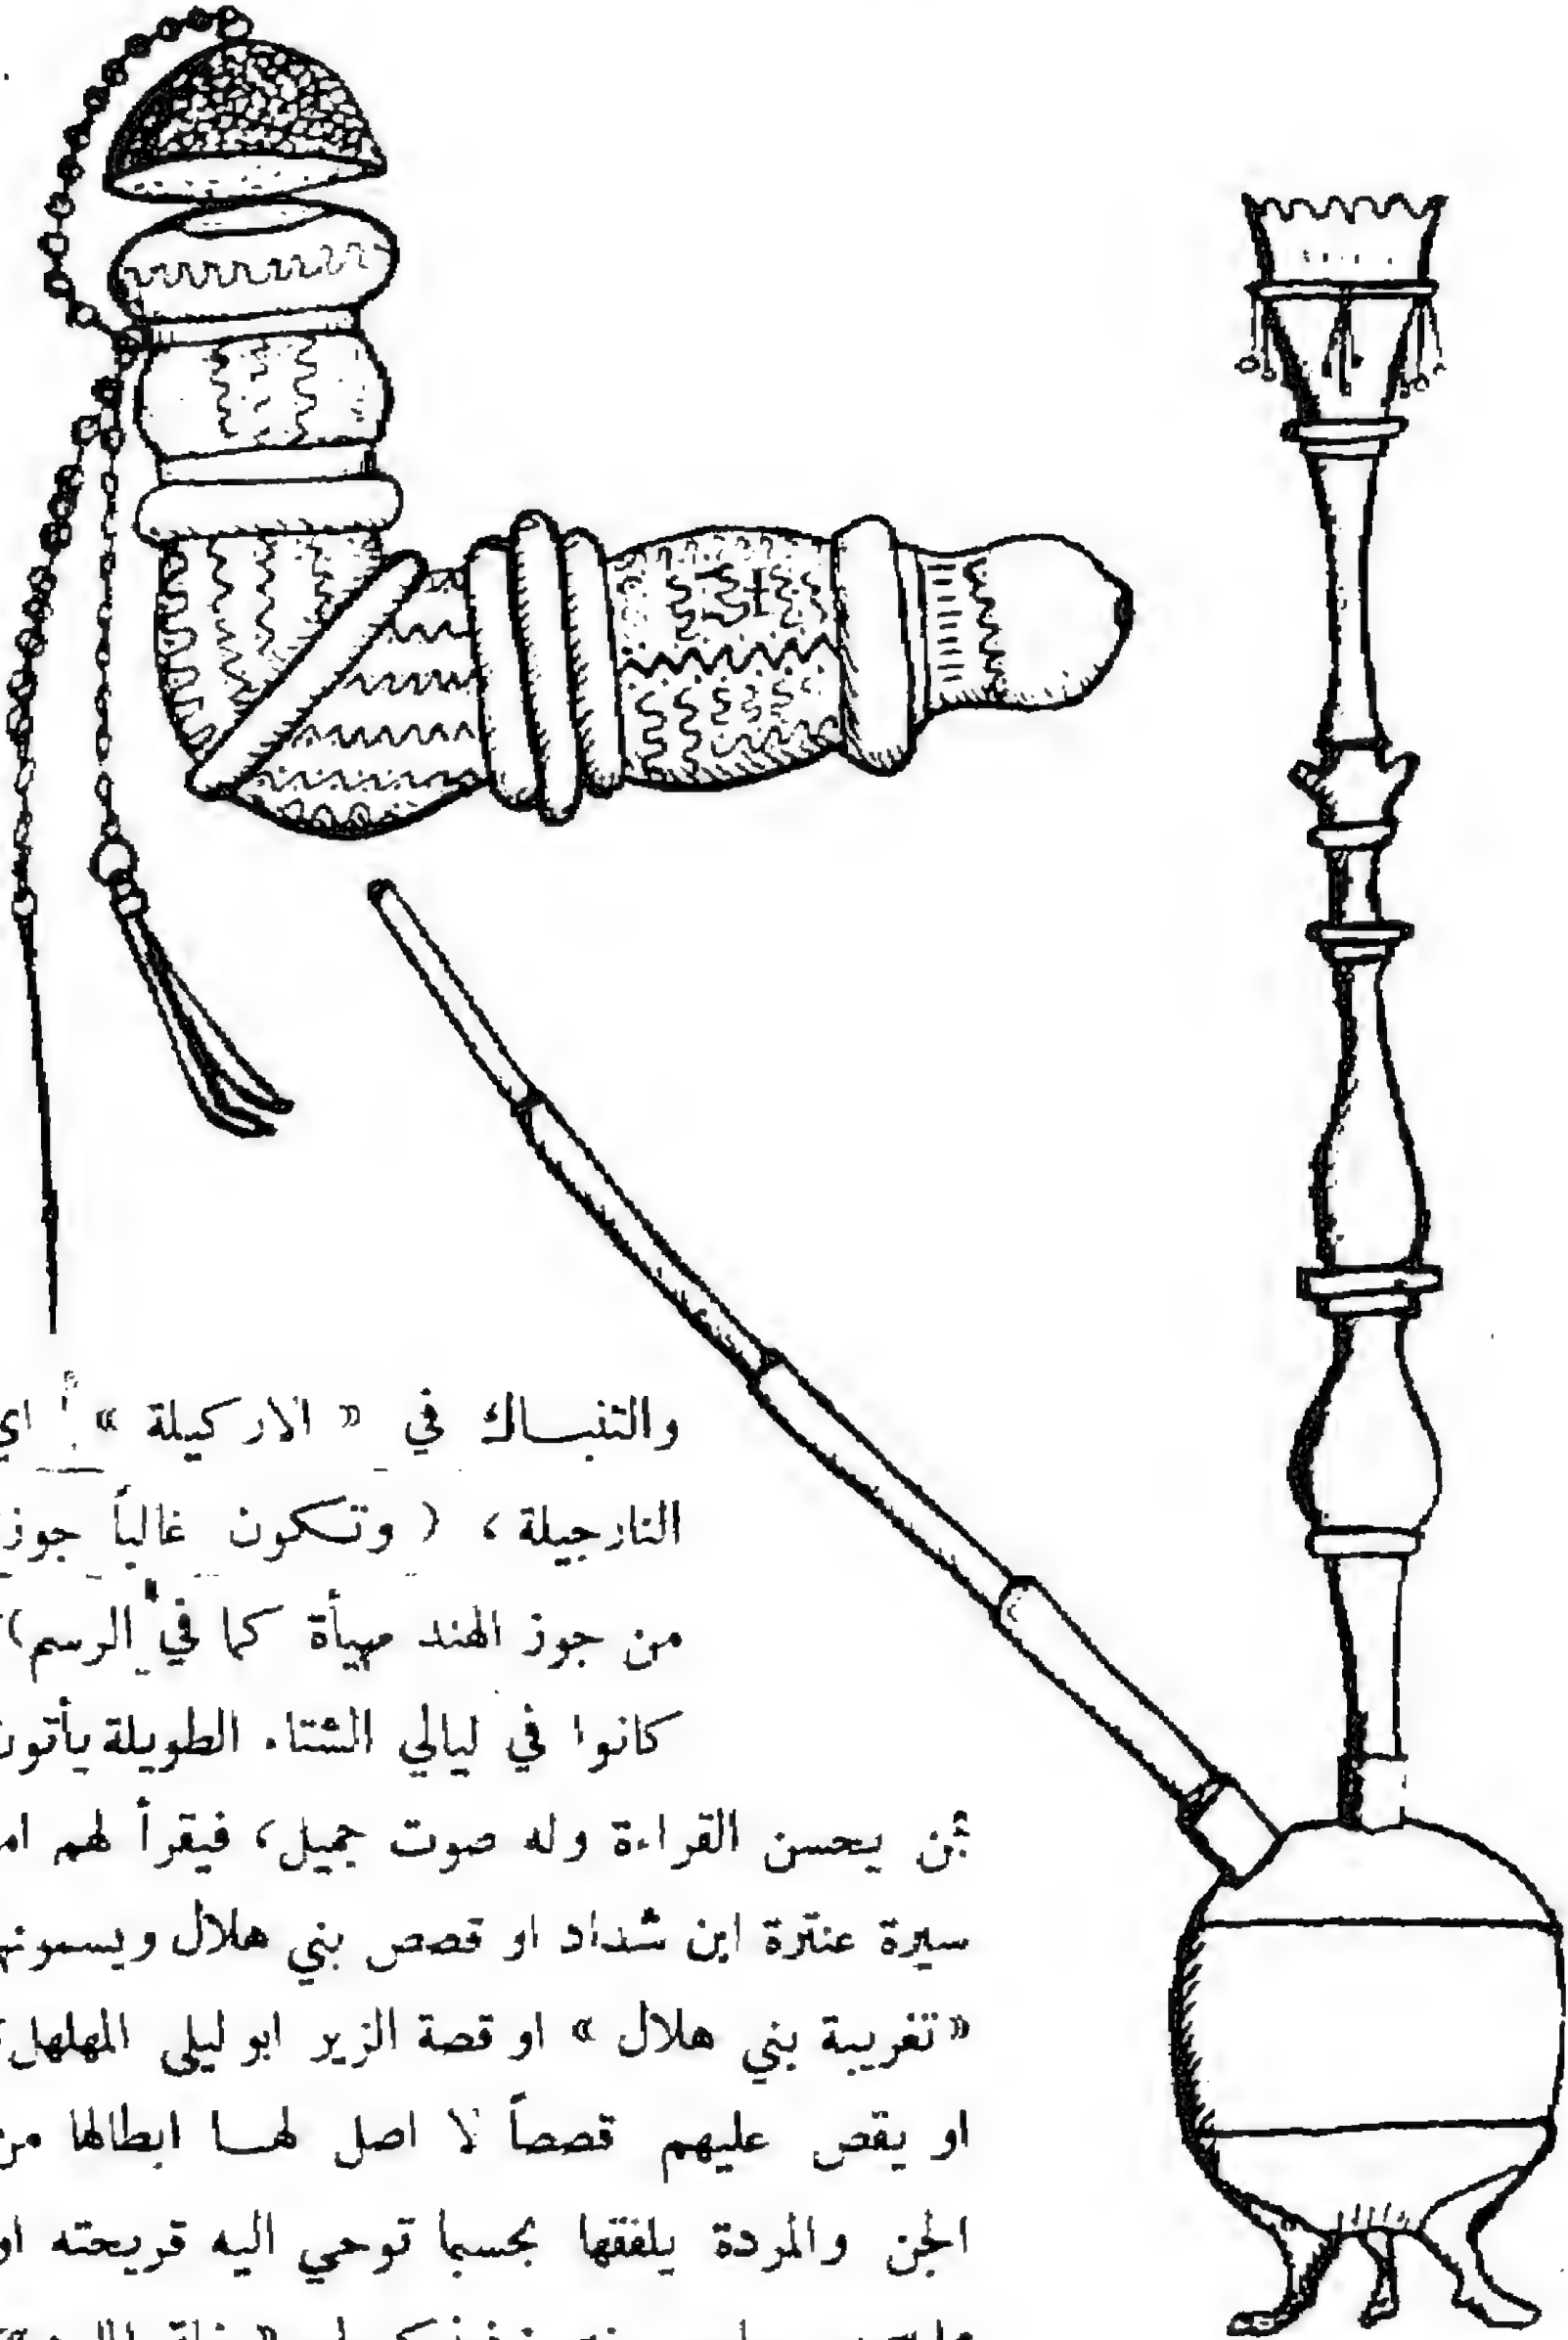 والتنباك في « الاركيلة » اي
النارجيلة ، ( وتكون غالباً جوز
من جوز الهند مهيأة كما في الرسم)
كانوا في ليالي الشتاء الطويلة يأتون
بمن يحسن القراءة وله صوت جميل، فيقرأ لهم ام
سيرة عنترة ابن شداد او قصص بني هلال ويسمونه
« تغريبة بني هلال » او قصة الزير ابو ليلى المهلهل،
او يقص عليهم قصصاً لا اصل لها ابطالها من
الجن والمردة يلفقها بحسبما توحي اليه قريحته او